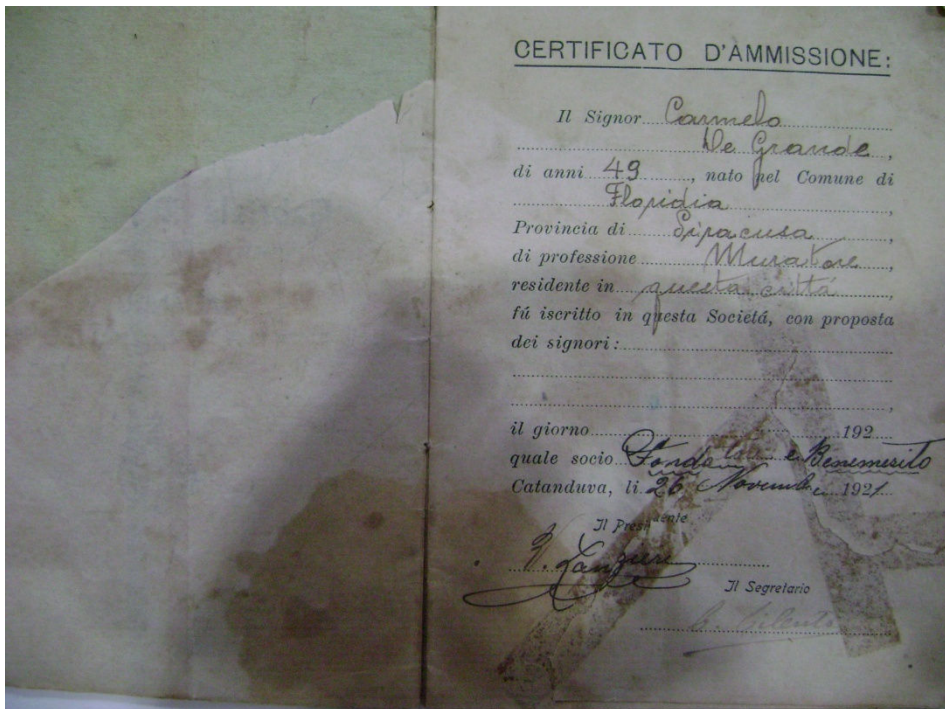 CERTIFICATO D'AMMISSIONE:
Il Signor Carmelo
De Grande,
di anni 49, nato nel Comune di
Floridia,
Provincia di Siracusa,
di professione Muratore,
residente in questa cittá,
fú iscritto in questa Societá, con proposta
dei signori:
il giorno 192
quale socio Fondatore e Benemerito
Catanduva, li 26 Novembre 1921
Il Presidente
Il Segretario